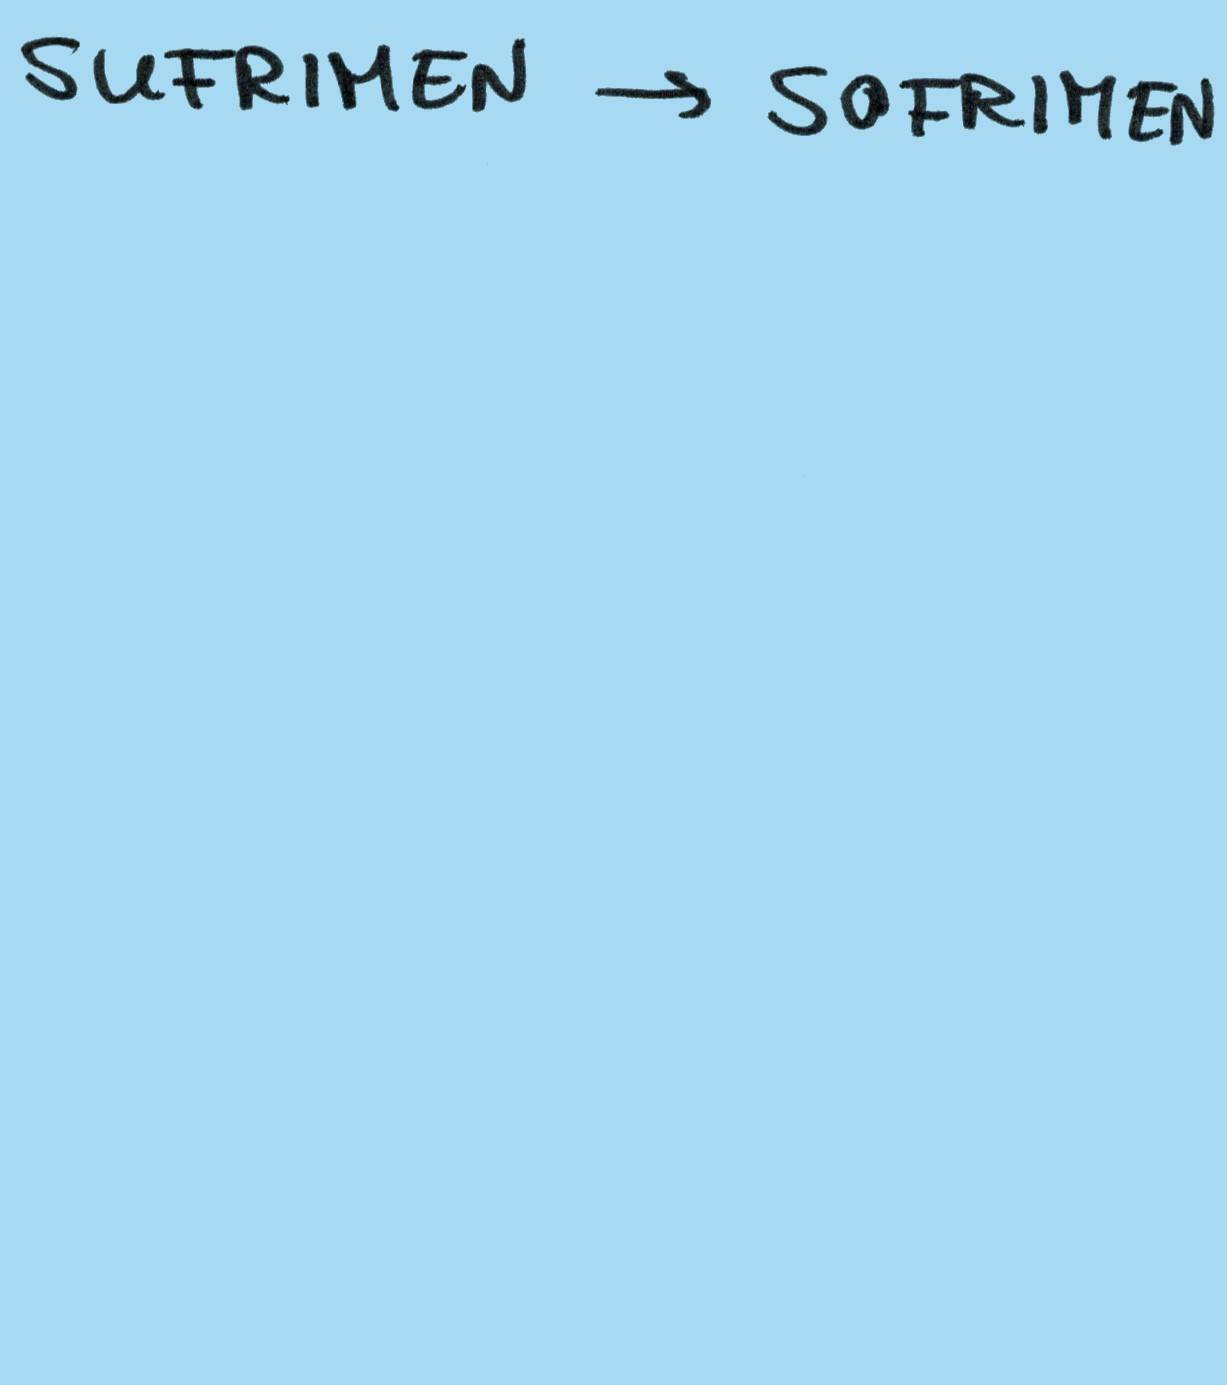 SUFRIMEN → SOFRIMEN